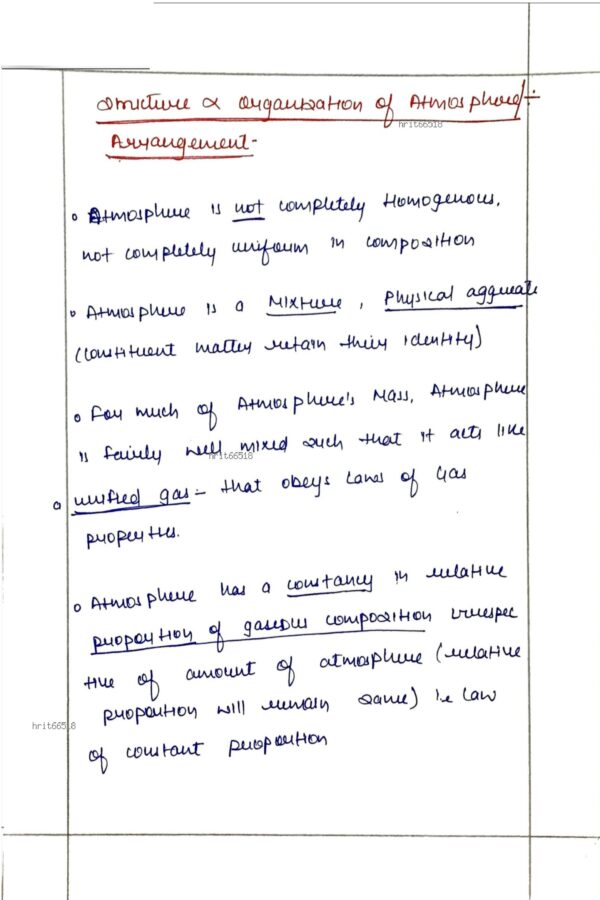 Structure & Organization of Atmosphere/÷
hrit66518
Arrangement-
Atmosphere is not completely Homogenous,
not completely uniform in composition
Atmosphere is a Mixture, Physical aggregate
(constituent matter retain their identity)
For much of Atmosphere's Mass, Atmosphere
is fairly well mixed such that it acts like
hrit66518
unified gas - that obeys Laws of Gas
properties.
Atmosphere has a constancy in relative
proportion of gaseous composition irrespec
tive of amount of atmosphere (relative
proportion will remain same) ie Law
hrit66518
of constant proportion